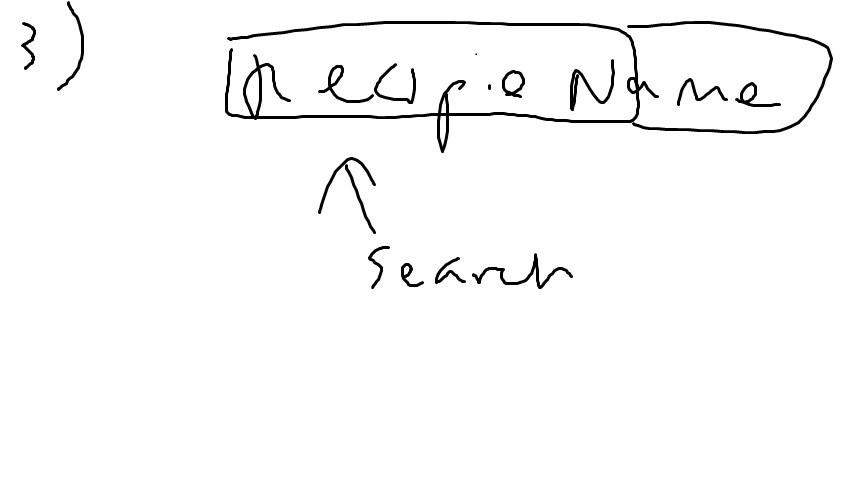 3)
Recipie Name
Search